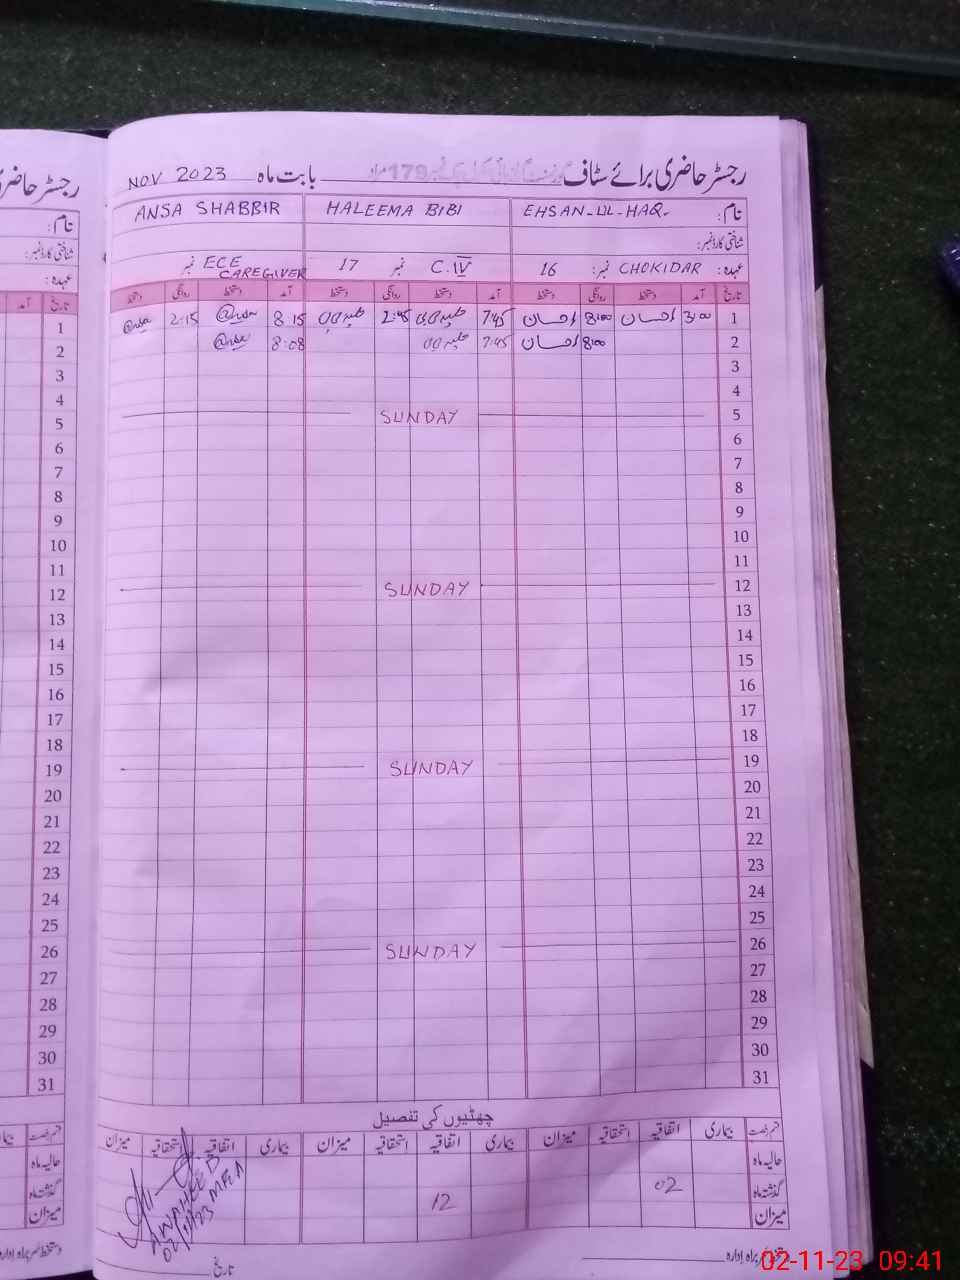 رجسٹر حاضری برائے سٹاف بابت ماہ NOV 2023
نام: EHSAN-UL-HAQ. HALEEMA BIBI ANSA SHABBIR
شناختی کارڈ نمبر:
عہدہ: CHOKIDAR نمبر: 16 C.IV نمبر 17 ECE CAREGIVER نمبر
تاریخ آمد دستخط روانگی دستخط آمد دستخط روانگی دستخط آمد دستخط روانگی دستخط
1 3:00 احسان 8:00 احسان 7:45 حلیمہ بی بی 2:45 حلیمہ بی بی 8:15 @nsa 2:15 @nsa
2 8:00 احسان 7:45 حلیمہ بی بی 8:08 @nsa
3
4
5 SUNDAY
6
7
8
9
10
11
12 SUNDAY
13
14
15
16
17
18
19 SUNDAY
20
21
22
23
24
25
26 SUNDAY
27
28
29
30
31
چھٹیوں کی تفصیل
قسم رخصت بیماری اتفاقیہ استحقاقیہ میزان بیماری اتفاقیہ استحقاقیہ میزان بیماری اتفاقیہ استحقاقیہ میزان
حالیہ ماہ
گذشتہ ماہ 02 12
میزان
AWAHEED
02/11/23 MEA
دستخط سربراہ ادارہ
تاریخ
رجسٹر حاضری
نام:
شناختی کارڈ نمبر:
عہدہ:
تاریخ آمد
1
2
3
4
5
6
7
8
9
10
11
12
13
14
15
16
17
18
19
20
21
22
23
24
25
26
27
28
29
30
31
قسم رخصت
حالیہ ماہ
گذشتہ ماہ
میزان
دستخط سربراہ ادارہ
02-11-23 09:41